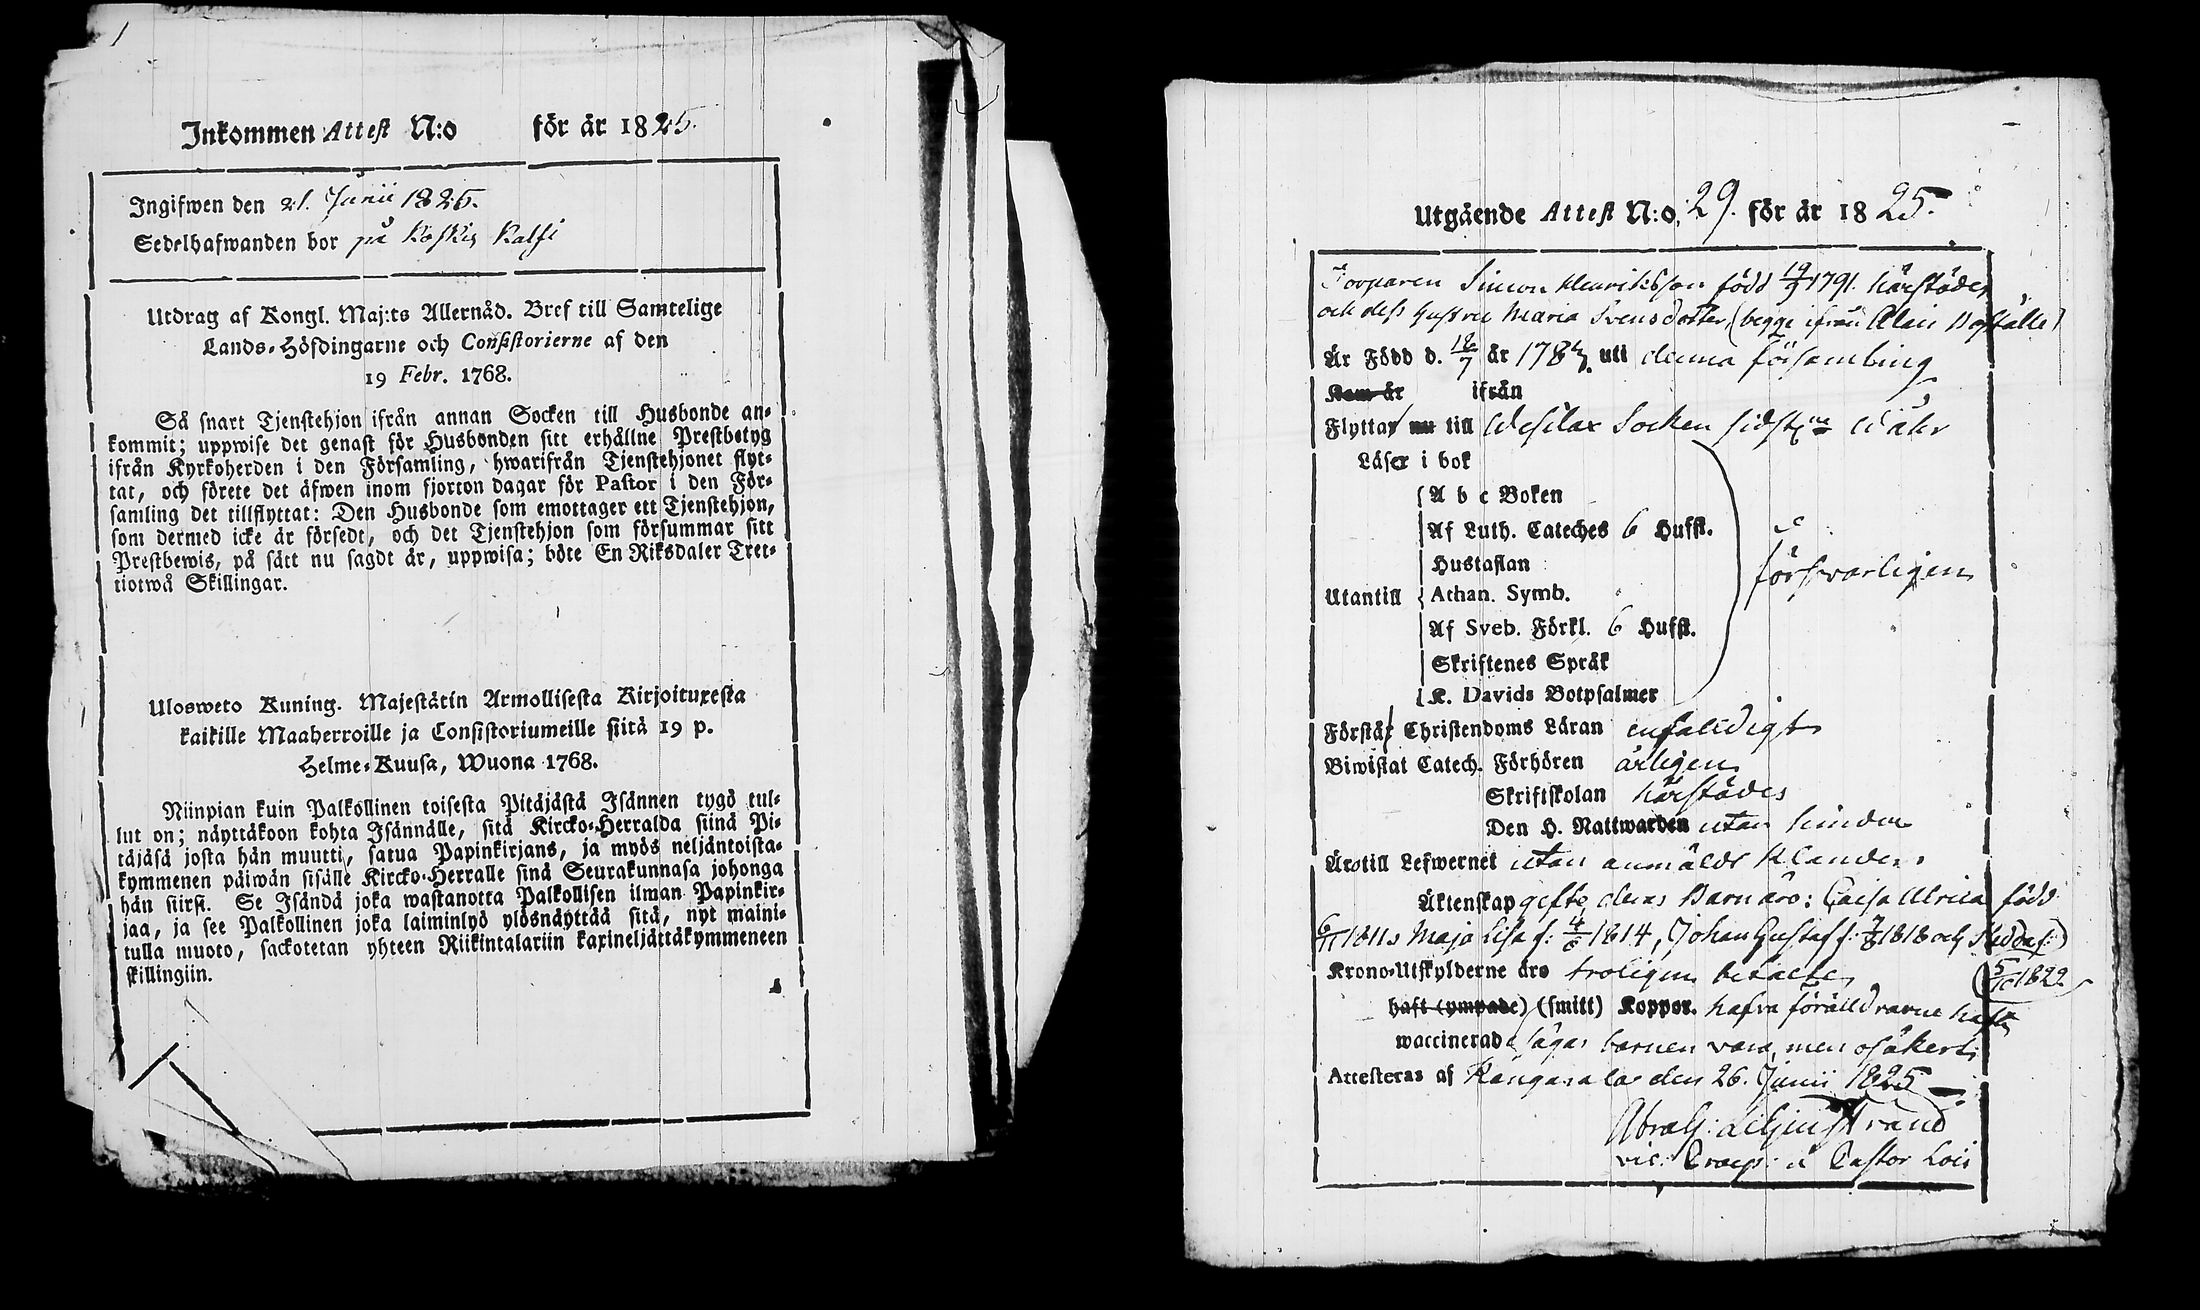 Inkommen Attest N:o för år 1825.
Ingifwen den 21. Junii 1825.
Sedelhafwanden bor på Koskis Kalsi
Utdrag af Kongl. Maj:ts Allernåd. Bref till Samtelige
Lands-Höfdingarne och Consistorierne af den
19 Febr. 1768.
Så snart Tjenstehjon ifrån annan Socken till Husbonde an-
kommit; uppwise det genast för Husbonden sitt erhållne Prestbetyg
ifrån Kyrkoherden i den Församling, hwarifrån Tjenstehjonet flyt-
tat, och förete det äfwen inom fjorton dagar för Pastor i den För-
samling det tillflyttat: Den Husbonde som emottager ett Tjenstehjon,
som dermed icke är försedt, och det Tjenstehjon som försummar sitt
Prestbewis, på sätt nu sagdt är, uppwisa; böte En Riksdaler Tret-
tiotwå Skillingar.
Ulosweto Kuning. Majestätin Armollisesta Kirjoituxesta
kaikille Maaherroille ja Consistoriumeille siitä 19 p.
Helme-Kuusa, Wuona 1768.
Niinpian kuin Palkollinen toisesta Pitäjästä Isännen tygö tul-
lut on; näyttäkoon kohta Isännälle, sitä Kircko-Herralda siinä Pi-
täjäsä josta hän muutti, satua Papinkirjans, ja myös neljäntoista-
kymmenen päiwän sisälle Kircko-Herralle sinä Seurakunnasa johonga
hän siirsi. Se Isändä joka wastanotta Palkollisen ilman Papinkir-
jaa, ja see Palkollinen joka laiminlyö ylösnäyttää sitä, nyt maini-
tulla muoto, sackotetan yhteen Riikintalariin kaxineljättäkymmeneen
skillingiin.
Utgående Attest N:o 29. för år 1825.
Torparen Simon Henriksson född 19/9 1791. härstädes
och dess hustru Maria Svensdotter (begge ifrån Alais Boställe)
Är Född d. 18/7 år 1783. uti denna församling
Kom år ifrån
Flyttar nu till Wesilax Socken sidstne wåhr
Läser i bok
A b c Boken
Af Luth. Cateches 6 Hufst.
Hustaflan
Utantill Athan. Symb. försvarligen
Af Sveb. Förkl. 6 Hufst.
Skriftenes Språk
K. Davids Botpsalmer
Förstår Christendoms Läran enfalldigt
Biwistat Catech. Förhören årligen
Skriftskolan härstädes
Den H. Nattwarden utan hinder
Är till Lefwernet utan anmäldt klander.
Äktenskap gifte deras Barn äro: Caisa Ulrica född
6/11 1811, Maja Lisa f: 4/6 1814, Johan Gustaf f: 7/8 1818 och
5/10 1822
Krono-Utskylderne äro troligen betalte
haft (ympade) (smitt) Koppor. hafva föräldrarne haft,
waccinerade sägas barnen vara, men osäkert.
Attesteras af Kangasala den 26. Junii 1825
Abrah: Liljenstrand
vic: Praep: a Pastor Loci